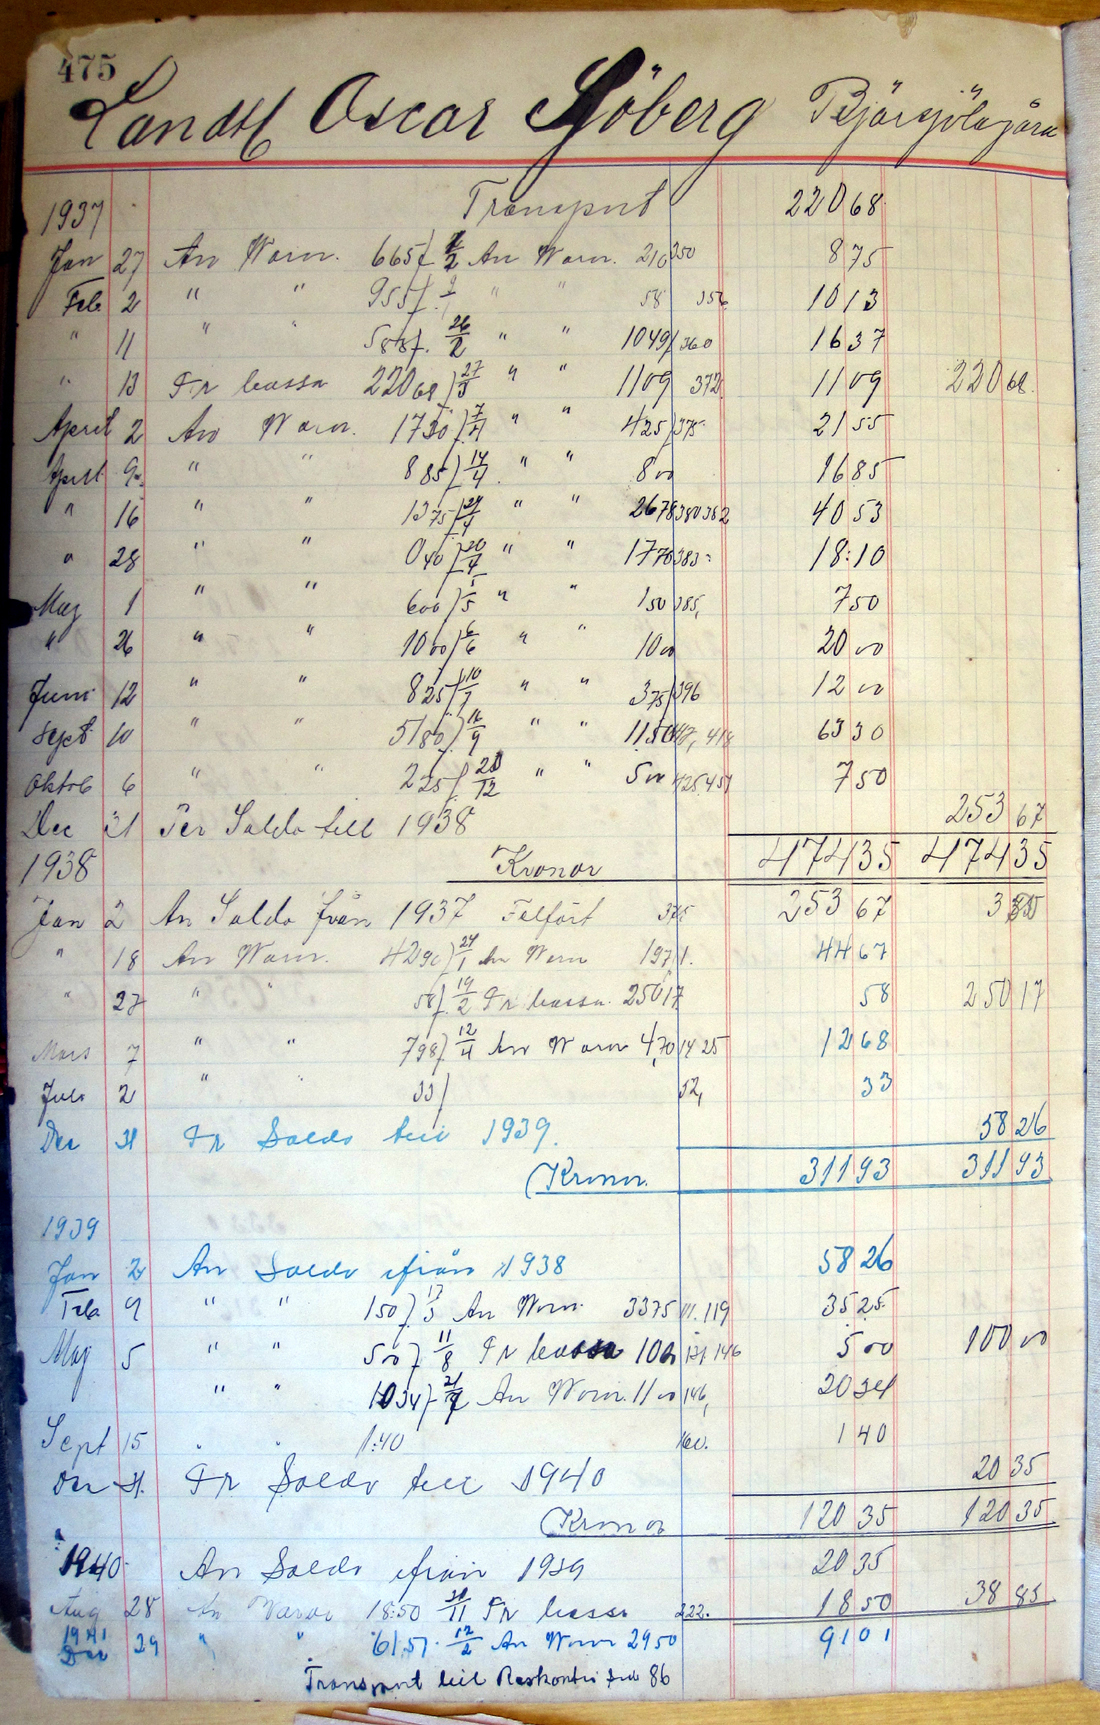 475
Landtb Oscar Sjöberg Bjärsjölagård
1937 Transport 220 68
Jan 27 An Varor. 665 / An Varor. 210 350 8 75
Feb 2 " " 955 / " " 58 356 10 13
" 11 " " 588 / 26/2 " " 1049 / 360 16 37
" 13 Pr cassa 220 68 / 27/3 " " 1109 372 11 09 220 68
April 2 An Varor. 1730 / 7/4 " " 425 / 375 21 55
April 9 " " 885 / 14/4 " " 800 16 85
" 16 " " 1375 / 24/4 " " 2678 380 382 40 53
" 28 " " 040 / 20/4 " " 1770 383 18:10
Maj 1 " " 600 / 5/5 " " 150 385, 7 50
" 26 " " 1000 / 6/6 " " 1000 20 00
Juni 12 " " 825 / 10/7 " " 375 / 396 12 00
Sept 10 " " 5180 / 16/9 " " 1150 418 63 30
Oktob 6 " " 225 / 20/12 " " 500 425 451 7 50
Dec 31 Per Saldo till 1938 253 67
1938 Kronor 474 35 474 35
Jan 2 An Saldo från 1937 Felfört 375 253 67
" 18 An Varor. 4290 / 24/1 An Varor 197 1. 44 67
" 27 " " 58 / 19/2 Pr cassa. 250 17 58 250 17
Mars 7 " " 798 / 12/4 An Varor 4,70 14 25 12 68
Juli 2 " " 33 / 52, 33
Dec 31 Pr Saldo till 1939. 58 26
Kronor. 311 93 311 93
1939
Jan 2 An Saldo ifrån 1938 58 26
Feb 9 " " 150 / 17/3 An Varor. 3375 111. 119 35 25
Maj 5 " " 500 / 11/8 Pr cassa 100 131 146 5 00 100 00
" " 1034 / An Varor. 1100 146, 20 34
Sept 15 " " 1:40 160. 1 40
Dec 31. Pr Saldo till 1940 20 35
Kronor 120 35 120 35
1940 An Saldo ifrån 1939 20 35
Aug 28 An Varor 18:50 /11 Pr cassa 222. 18 50 38 85
1941 Dec 29 " " 61,51. 12/2 An Varor 29 50 91 01
Transport till Reskontra sid 86